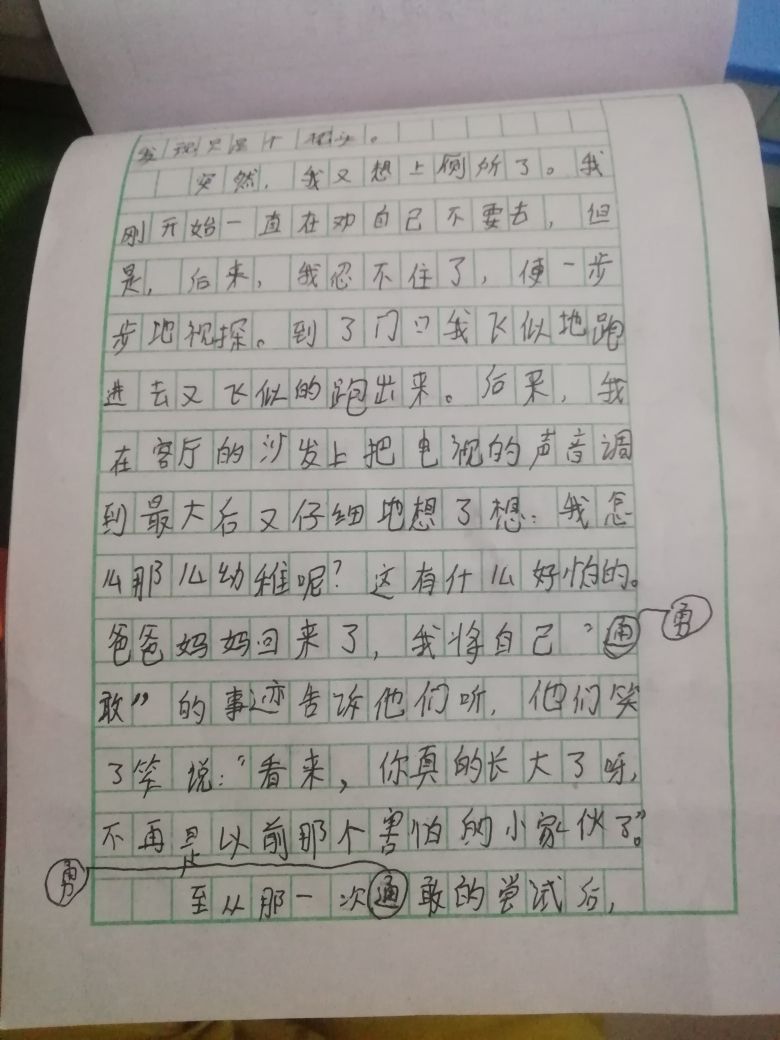 发现只是个枕头。
突然，我又想上厕所了。我
刚开始一直在劝自己不要去，但
是，后来，我忍不住了，便一步
步地视探。到了门口我飞似地跑
进去又飞似的跑出来。后来，我
在客厅的沙发上把电视的声音调
到最大后又仔细地想了想：我怎
么那么幼稚呢？这有什么好怕的。
爸爸妈妈回来了，我将自己“通勇
敢”的事迹告诉他们听，他们笑
了笑说：“看来，你真的长大了呀，
不再是以前那个害怕的小家伙了”。
勇
至从那一次通敢的尝试后，